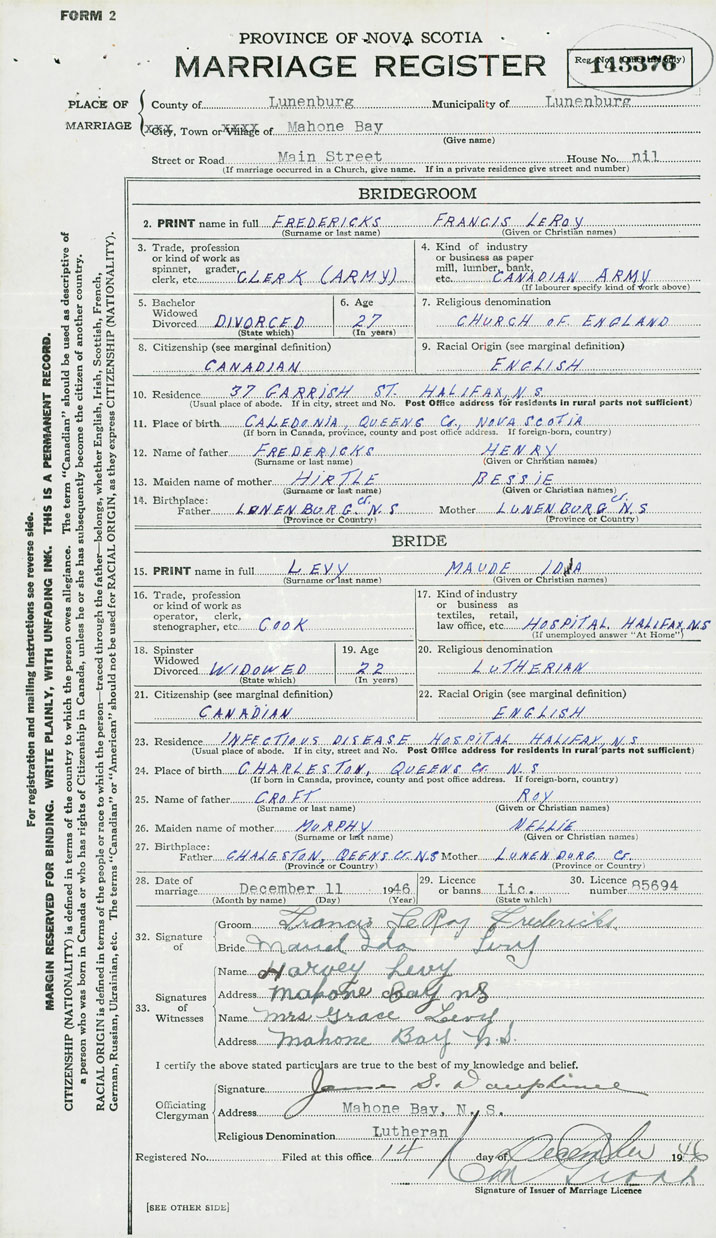 FORM 2
PROVINCE OF NOVA SCOTIA
MARRIAGE REGISTER
Reg. No. (Office use only)
143376
PLACE OF MARRIAGE
County of Lunenburg Municipality of Lunenburg
xxx City, Town or Village xxxx of Mahone Bay
(Give name)
Street or Road Main Street House No. nil
(If marriage occurred in a Church, give name. If in a private residence give street and number)
BRIDEGROOM
2. PRINT name in full FREDERICKS FRANCIS LEROY
(Surname or last name) (Given or Christian names)
3. Trade, profession or kind of work as spinner, grader, clerk, etc. CLERK (ARMY)
4. Kind of industry or business as paper mill, lumber, bank, etc. CANADIAN ARMY
(If labourer specify kind of work above)
5. Bachelor Widowed Divorced DIVORCED
(State which)
6. Age 27
(In years)
7. Religious denomination
CHURCH OF ENGLAND
8. Citizenship (see marginal definition)
CANADIAN
9. Racial Origin (see marginal definition)
ENGLISH
10. Residence 37 GARRISH ST. HALIFAX, N.S
(Usual place of abode. If in city, street and No. Post Office address for residents in rural parts not sufficient)
11. Place of birth CALEDONIA, QUEENS Co, NOVA SCOTIA
(If born in Canada, province, county and post office address. If foreign-born, country)
12. Name of father FREDERICKS HENRY
(Surname or last name) (Given or Christian names)
13. Maiden name of mother HIRTLE BESSIE
(Surname or last name) (Given or Christian names)
14. Birthplace:
Father LUNENBURG Cr. N.S Mother LUNENBURG Cr. N.S
(Province or Country) (Province or Country)
BRIDE
15. PRINT name in full LEVY MAUDE IDA
(Surname or last name) (Given or Christian names)
16. Trade, profession or kind of work as operator, clerk, stenographer, etc. COOK
17. Kind of industry or business as textiles, retail, law office, etc. HOSPITAL HALIFAX, N.S
(If unemployed answer "At Home")
18. Spinster Widowed Divorced WIDOWED
(State which)
19. Age 22
(In years)
20. Religious denomination
LUTHERIAN
21. Citizenship (see marginal definition)
CANADIAN
22. Racial Origin (see marginal definition)
ENGLISH
23. Residence INFECTIOUS DISEASE HOSPITAL HALIFAX, N.S
(Usual place of abode. If in city, street and No. Post Office address for residents in rural parts not sufficient)
24. Place of birth CHARLESTON, QUEENS Cr. N.S
(If born in Canada, province, county and post office address. If foreign-born, country)
25. Name of father CROFT ROY
(Surname or last name) (Given or Christian names)
26. Maiden name of mother MURPHY NELLIE
(Surname or last name) (Given or Christian names)
27. Birthplace:
Father CHALESTON, QEENS Cr. N.S Mother LUNENBURG Cr.
(Province or Country) (Province or Country)
28. Date of marriage December 11 1946
(Month by name) (Day) (Year)
29. Licence or banns Lic.
(State which)
30. Licence number 85694
32. Signature of
Groom Francis LeRoy Fredericks
Bride Maud Ida Levy
33. Signatures of Witnesses
Name Harvey Levy
Address Mahone Bay NS
Name Mrs Grace Levy
Address Mahone Bay N.S.
I certify the above stated particulars are true to the best of my knowledge and belief.
Officiating Clergyman
Signature James S. Dauphinee
Address Mahone Bay, N. S.
Religious Denomination Lutheran
Registered No. Filed at this office 14 day of December 1946
Signature of Issuer of Marriage Licence
[SEE OTHER SIDE]
For registration and mailing instructions see reverse side.
MARGIN RESERVED FOR BINDING. WRITE PLAINLY, WITH UNFADING INK. THIS IS A PERMANENT RECORD.
CITIZENSHIP (NATIONALITY) is defined in terms of the country to which the person owes allegiance. The term "Canadian" should be used as descriptive of
a person who was born in Canada or who has rights of Citizenship in Canada, unless he or she has subsequently become the citizen of another country.
RACIAL ORIGIN is defined in terms of the people or race to which the person—traced through the father—belongs, whether English, Irish, Scottish, French,
German, Russian, Ukrainian, etc. The terms "Canadian" or "American" should not be used for RACIAL ORIGIN, as they express CITIZENSHIP (NATIONALITY).